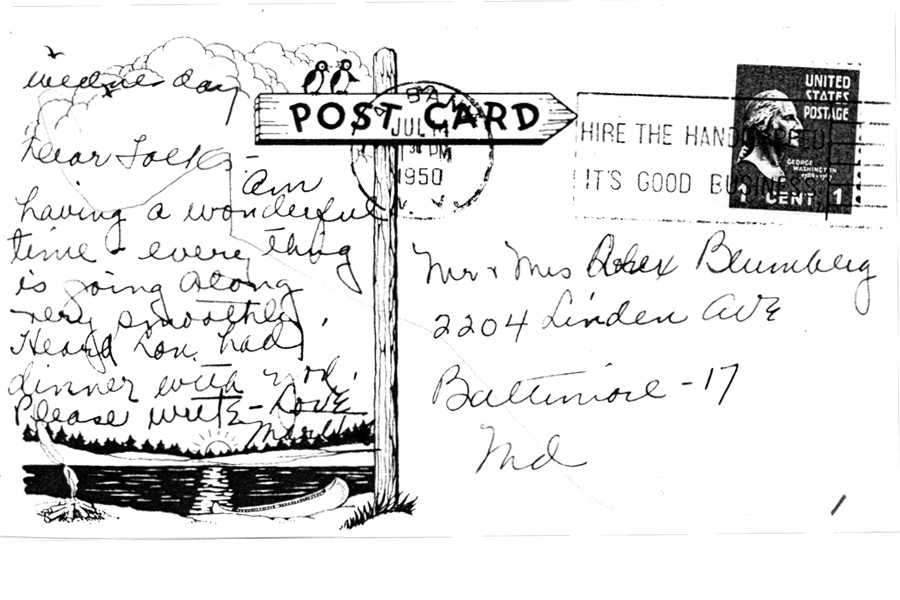 Wednesday
Dear Folks -
Am
having a wonderful
time - every thing
is going along
very smoothly.
Heard Lou had
dinner with you.
Please write - Love
POST CARD
JUL
PM
1950
HIRE THE HANDICAPPED
IT'S GOOD BUSINESS
UNITED
STATES
POSTAGE
GEORGE
WASHINGTON
1 CENT 1
Mr + Mrs Alex Blumberg
2204 Linden AVE
Baltimore - 17
Md